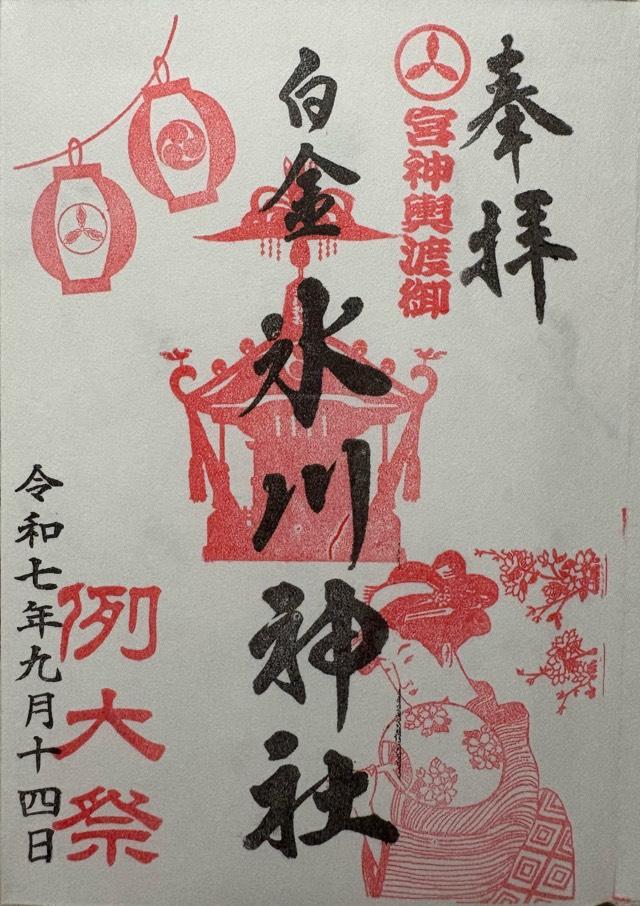 奉拝
宮神輿渡御
白金氷川神社
例大祭
令和七年九月十四日